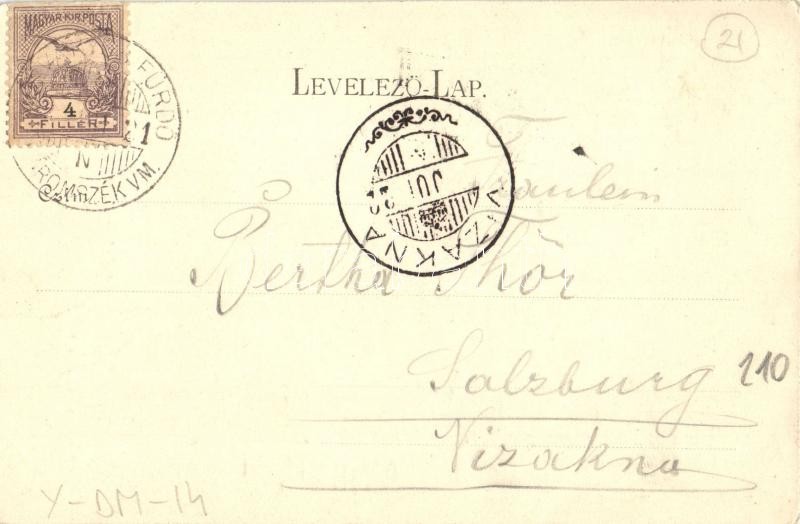 MAGYAR KIR. POSTA
4
FILLÉR
FÜRDŐ
21
N
HÁROMSZÉK VM.
21
LEVELEZŐ-LAP.
VIZAKNA
JUL
Fräulein
Bertha Thör
Salzburg
210
Vizakna
Y-DM-14